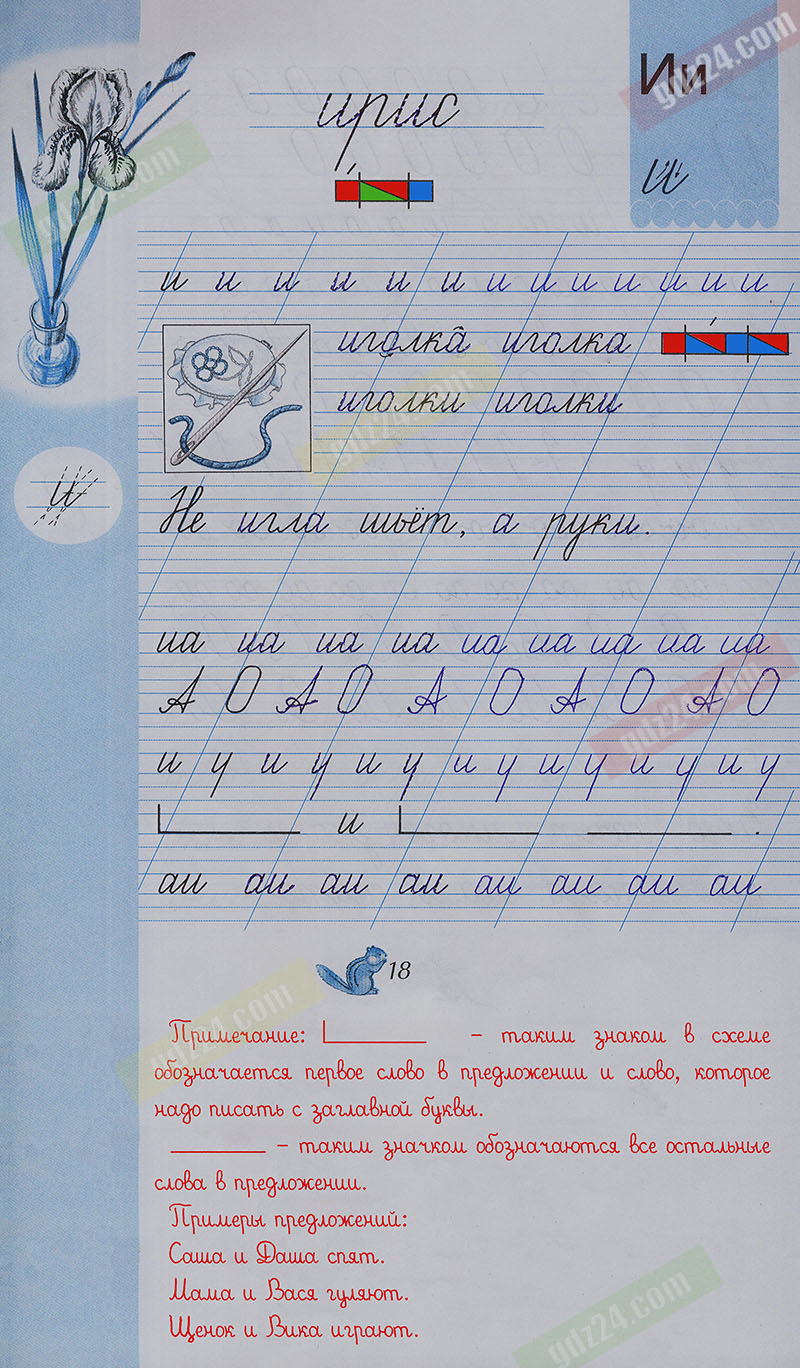 Ии
и
ирис
и и и и и и и и и и и и
иголка иголка
иголки иголки
и
Не игла шьёт, а руки.
иа иа иа иа иа иа иа иа иа
А О А О А О А О А О
и у и у и у и у и у и у и у
и .
аи аи аи аи аи аи аи аи
18
Примечание: – таким знаком в схеме
обозначается первое слово в предложении и слово, которое
надо писать с заглавной буквы.
– таким значком обозначаются все остальные
слова в предложении.
Примеры предложений:
Саша и Даша спят.
Мама и Вася гуляют.
Щенок и Вика играют.
gdz24.com
gdz24.com
gdz24.com
gdz24.com
gdz24.com
gdz24.com